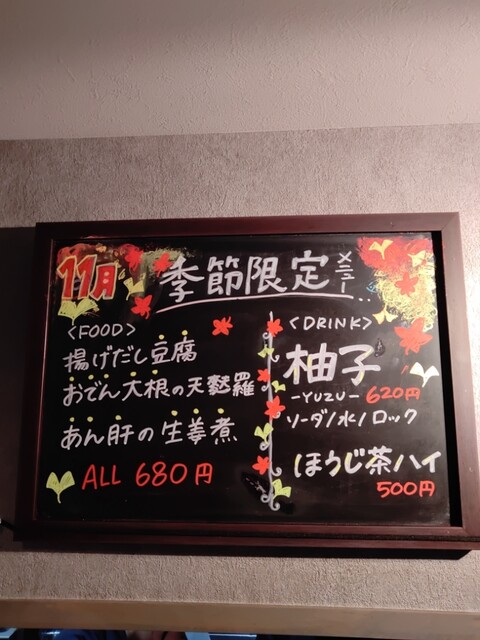 11月 季節限定メニュー
<FOOD>
揚げだし豆腐
おでん大根の天麩羅
あん肝の生姜煮
ALL 680円
<DRINK>
柚子
-YUZU- 620円
ソーダ/水/ロック
ほうじ茶ハイ
500円